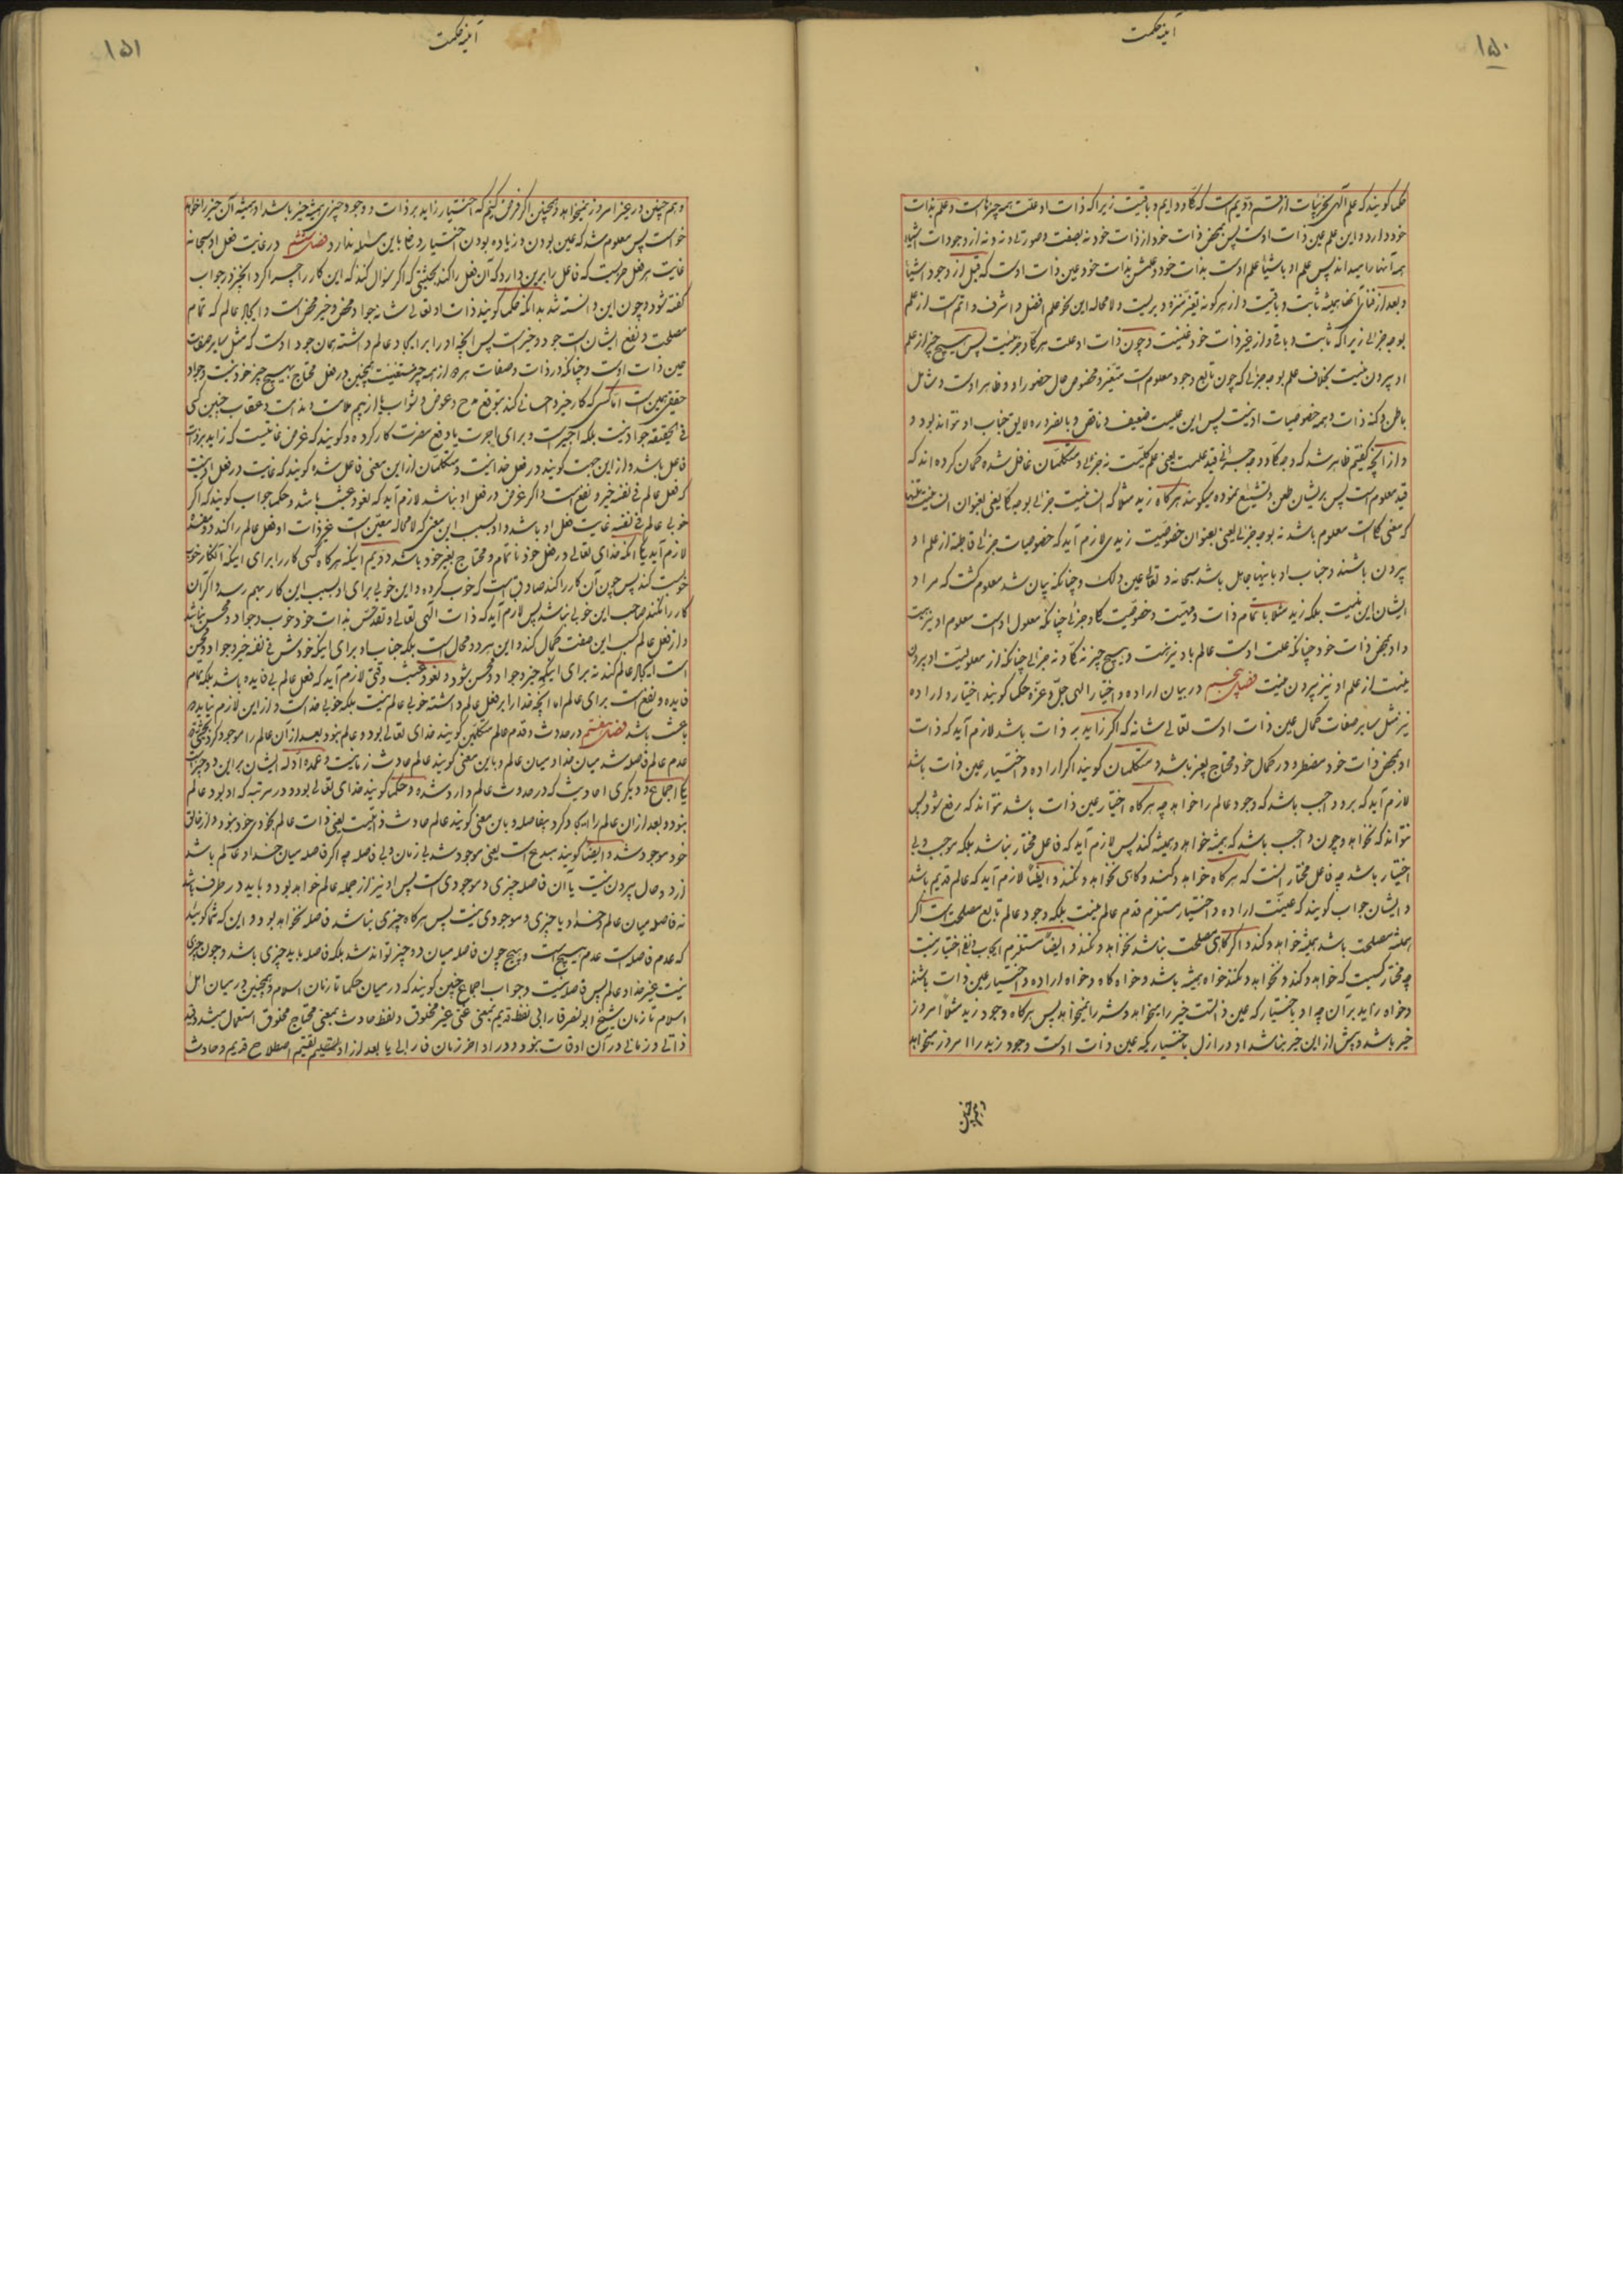 ۱۵۰
آینهٔ حکمت
حکما کویند که علم آلهی بجزئیات از قسم دویم است که کلّی و دایم و باقیست زیرا که ذات او علّت همه چیزهاست و علم بذات
خود دارد و این علم عین ذات اوست پس بمحض ذات خود از ذات خود نه بصفت و صورتی و نه از وجودات اشیاء
همه آنها را میداند پس علم او باشیاء علم اوست بذات خود و علمش بذات خود عین ذات اوست که قبل از وجود اشیاء
و بعد از فنای آنها همیشه ثابت و باقیست و از هرگونه تغیّر منزّه و بریست و لا محاله این نحو علم افضل و اشرف و اتمّ است از علم
بوجه جزئی زیرا که ثابت و باقی و از غیر ذات خود غنیست و چون ذات او علت هر کلّی و جزئیست پس هیچ چیز از علم
او بیرون نیست بخلاف علم بوجه جزئی که چون تابع وجود معلوم است متغیّر و مخصوص حال حضور او و ظاهر اوست و شامل
باطن و کنه ذات و همه خصوصیات او نیست پس این علمیست ضعیف و ناقص و بالضروره لایق جناب او نتواند بود و
و از آنچه کفتیم ظاهر شد که وجه کلّی و وجه جزئی قید علمست یعنی علم کلّیست نه جزئی و متکلمان غافل شده کمان کرده اند که
قید معلوم است پس بر ایشان طعن و تشنیع نموده میکویند هرکاه زید مثلا که انسانیست جزئی بوجه کلّی یعنی بعنوان انسانیت
که معنی کلّی است معلوم باشد نه بوجه جزئی یعنی بعنوان خصوصیت زیدی لازم آید که خصوصیات جزئی قاطبة از علم او
بیرون باشند و جناب او باینها جاهل باشد سبحانه و تعالی عن ذلک و چنانکه بیان شد معلوم کشت که مراد
ایشان این نیست بلکه زید مثلا با تمام ذات و مهیّت و خصوصیّت کلّی و جزئی چنانکه معلول اوست معلوم او نیز هست
و او بمحض ذات خود چنانکه علت اوست عالم باو نیز هست و هیچ چیز نه کلّی و نه جزئی چنانکه از معلولیت او بیرون
نیست از علم او نیز بیرون نیست فصل پنجم در بیان اراده و اختیار الهی جلّ و عزّ حکما کویند اختیار و اراده
نیز مثل سایر صفات کمال عین ذات اوست تعالی شانه که اکر زاید بر ذات باشد لازم آید که ذات
او بمحض ذات خود مضطر و در کمال خود محتاج بغیر باشد و متکلمان کویند اکر اراده و اختیار عین ذات باشد
لازم آید که برو واجب باشد که وجود عالم را خواهد چه هرکاه اختیار عین ذات باشد نتواند که رفع شود پس
نتواند که نخواهد و چون واجب باشد که همیشه خواهد و همیشه کند پس لازم آید که فاعل مختار نباشد بلکه موجب و بی
اختیار باشد چه فاعل مختار آنست که هرکاه خواهد و کند و کاهی نخواهد و نکند و ایضاً لازم آید که عالم قدیم باشد
و ایشان جواب کویند که عینیّت اراده و اختیار مستلزم قدم عالم نیست بلکه وجود عالم تابع مصلحت است اکر
همیشه مصلحت باشد همیشه خواهد و کند و اکر کاهی مصلحت نباشد نخواهد و نکند و ایضاً مستلزم ایجاب و نفی اختیار نیست
چه مختار کسیست که خواهد و کند و نخواهد و نکند خواه همیشه باشد و خواه کاه و خواه اراده و اختیار عین ذات باشد
و خواه زاید بر آن چه او باختیار که عین ذاتست خیر را میخواهد و شر را نمیخواهد پس هرکاه وجود زید مثلاً امروز
خیر باشد و پیش از این خیر نباشد او در ازل باختیاریکه عین ذات اوست وجود زید را امروز میخواهد
و همچنین
۱۵۱
آینهٔ حکمت
و هم چنین در غیر امروز نمیخواهد و همچنین اکر فرض کنیم که اختیار زاید بر ذات و وجود چیزی همیشه خیر باشد او همیشه آن چیز را خواهد
خواست پس معلوم شد که عین بودن و زیاده بودن اختیار دخلی باین مسئله ندارد فصل ششم در غایت فعل او سبحانه
غایت هر فعل چیزیست که فاعل را برین دارد که آن فعل را کند بحیثیتی که اکر سؤال کنند که این کار را چرا کرد آنچیز در جواب
کفته شود و چون این دانسته شد بدانکه حکما کویند ذات او تعالی شانه جواد محض و خیر محض است و ایجاد عالم که تمام
مصلحت و نفع ایشان است جود و خیر است پس آنچه او را بر ایجاد عالم داشته همان جود اوست که مثل سایر صفات
عین ذات اوست و چنانکه در ذات و صفات هر از همه چیز مستغنیست همچنین در فعل محتاج بهیچ چیز خود نیست و جواد
حقیقی همین است امّا کسی که کار خیر و احسانی کند بتوقع مدح و عوض و ثواب یا از بیم ملامت و مذمت و عقاب چنین کسی
فی الحقیقة جواد نیست بلکه اجیر است و برای اجرت یا دفع مضرت کار کرده و کویند که غرض غایتیست که زاید بر ذات
فاعل باشد و از این جهت کویند در فعل خدا نیست و متکلمان از این معنی غافل شده کویند که غایت در فعل او نیست
که فعل عالم فی نفسه خیر و نفع است و اکر غرض در فعل او نباشد لازم آید که لغو و عبث باشد و حکما جواب کویند که اکر
خوبی عالم فی نفسه غایت فعل او باشد و او بسبب این معنی که لا محاله معیّن است غیر ذات او فعل عالم را کند دو مفسده
لازم آید یکی آنکه خدای تعالی در فعل خود ناتمام و محتاج بغیر خود باشد دویم اینکه هرکاه کسی کار را برای اینکه آنکار خوبی
خوبست کند پس چون آن کار را کند صادق است که خوب کرده و این خوبی برای او بسبب این کار بهم رسد و اکر آن
کار را نکند صاحب این خوبی نباشد پس لازم آید که ذات الهی تعالی و تقدّس بذات خود خوب و جواد و محسن نباشد
و از فعل عالم کسب این صفت کمال کند و این هر دو محال است بلکه جناب او برای اینکه خودش فی نفسه خیر و جواد و محسن
است ایجاد عالم کند نه برای اینکه خیر و جواد و محسن شود و لغو و عبث وقتی لازم آید که فعل عالم بی فایده باشد بلکه تمام
فایده و نفع است برای عالم اما آنچه خدا را بر فعل عالم داشته خوبی عالم نیست بلکه خوبی خداست و از این لازم نیاید که
عبث باشد فصل هفتم در حدوث و قدم عالم متکلمین کویند خدای تعالی بود و عالم نبود بعد از آن عالم را موجود کرد بحیثیتی که
عدم عالم فاصله شد میان خدا و میان عالم و باین معنی کویند عالم حادث زمانیست و عمده ادلّه ایشان بر این دو چیز است
یکی اجماع و دیکری احادیث که در حدوث عالم وارد شده و حکما کویند خدای تعالی بود در مرتبه که او بود عالم
نبود و بعد از آن عالم را ایجاد کرد بیفاصله و باین معنی کویند عالم حادث ذاتیست یعنی ذات عالم بخودی خود نبود و از خالق
خود موجود شد و ایضاً کویند مبدع است یعنی موجود شد بی زمان و بی فاصله چه اکر فاصله میان خدا و عالم باشد
از دو حال بیرون نیست یا آن فاصله چیزی و موجودی است پس او نیز از جمله عالم خواهد بود و باید در طرف باشد
نه فاصله میان عالم و خدا و یا چیزی و موجودی نیست پس هرکاه چیزی نباشد فاصله نخواهد بود و این که شما کویید
که عدم فاصله است عدم هیچ است و هیچ چون فاصله میان دو چیز تواند شد بلکه فاصله باید چیزی باشد و چون چیزی
نیست غیر خدا و عالم پس فاصله نیست و جواب اجماع چنین کویند که در میان حکما تا زمان اسلام و همچنین در میان اهل
اسلام تا زمان شیخ ابو نصر فارابی لفظ قدیم بمعنی غنی غیر مخلوق و لفظ حادث بمعنی محتاج مخلوق استعمال میشد و قید
ذاتی و زمانی در آن اوقات نبود و در اواخر زمان فارابی یا بعد از او بتقسیم اصطلاح قدیم و حادث